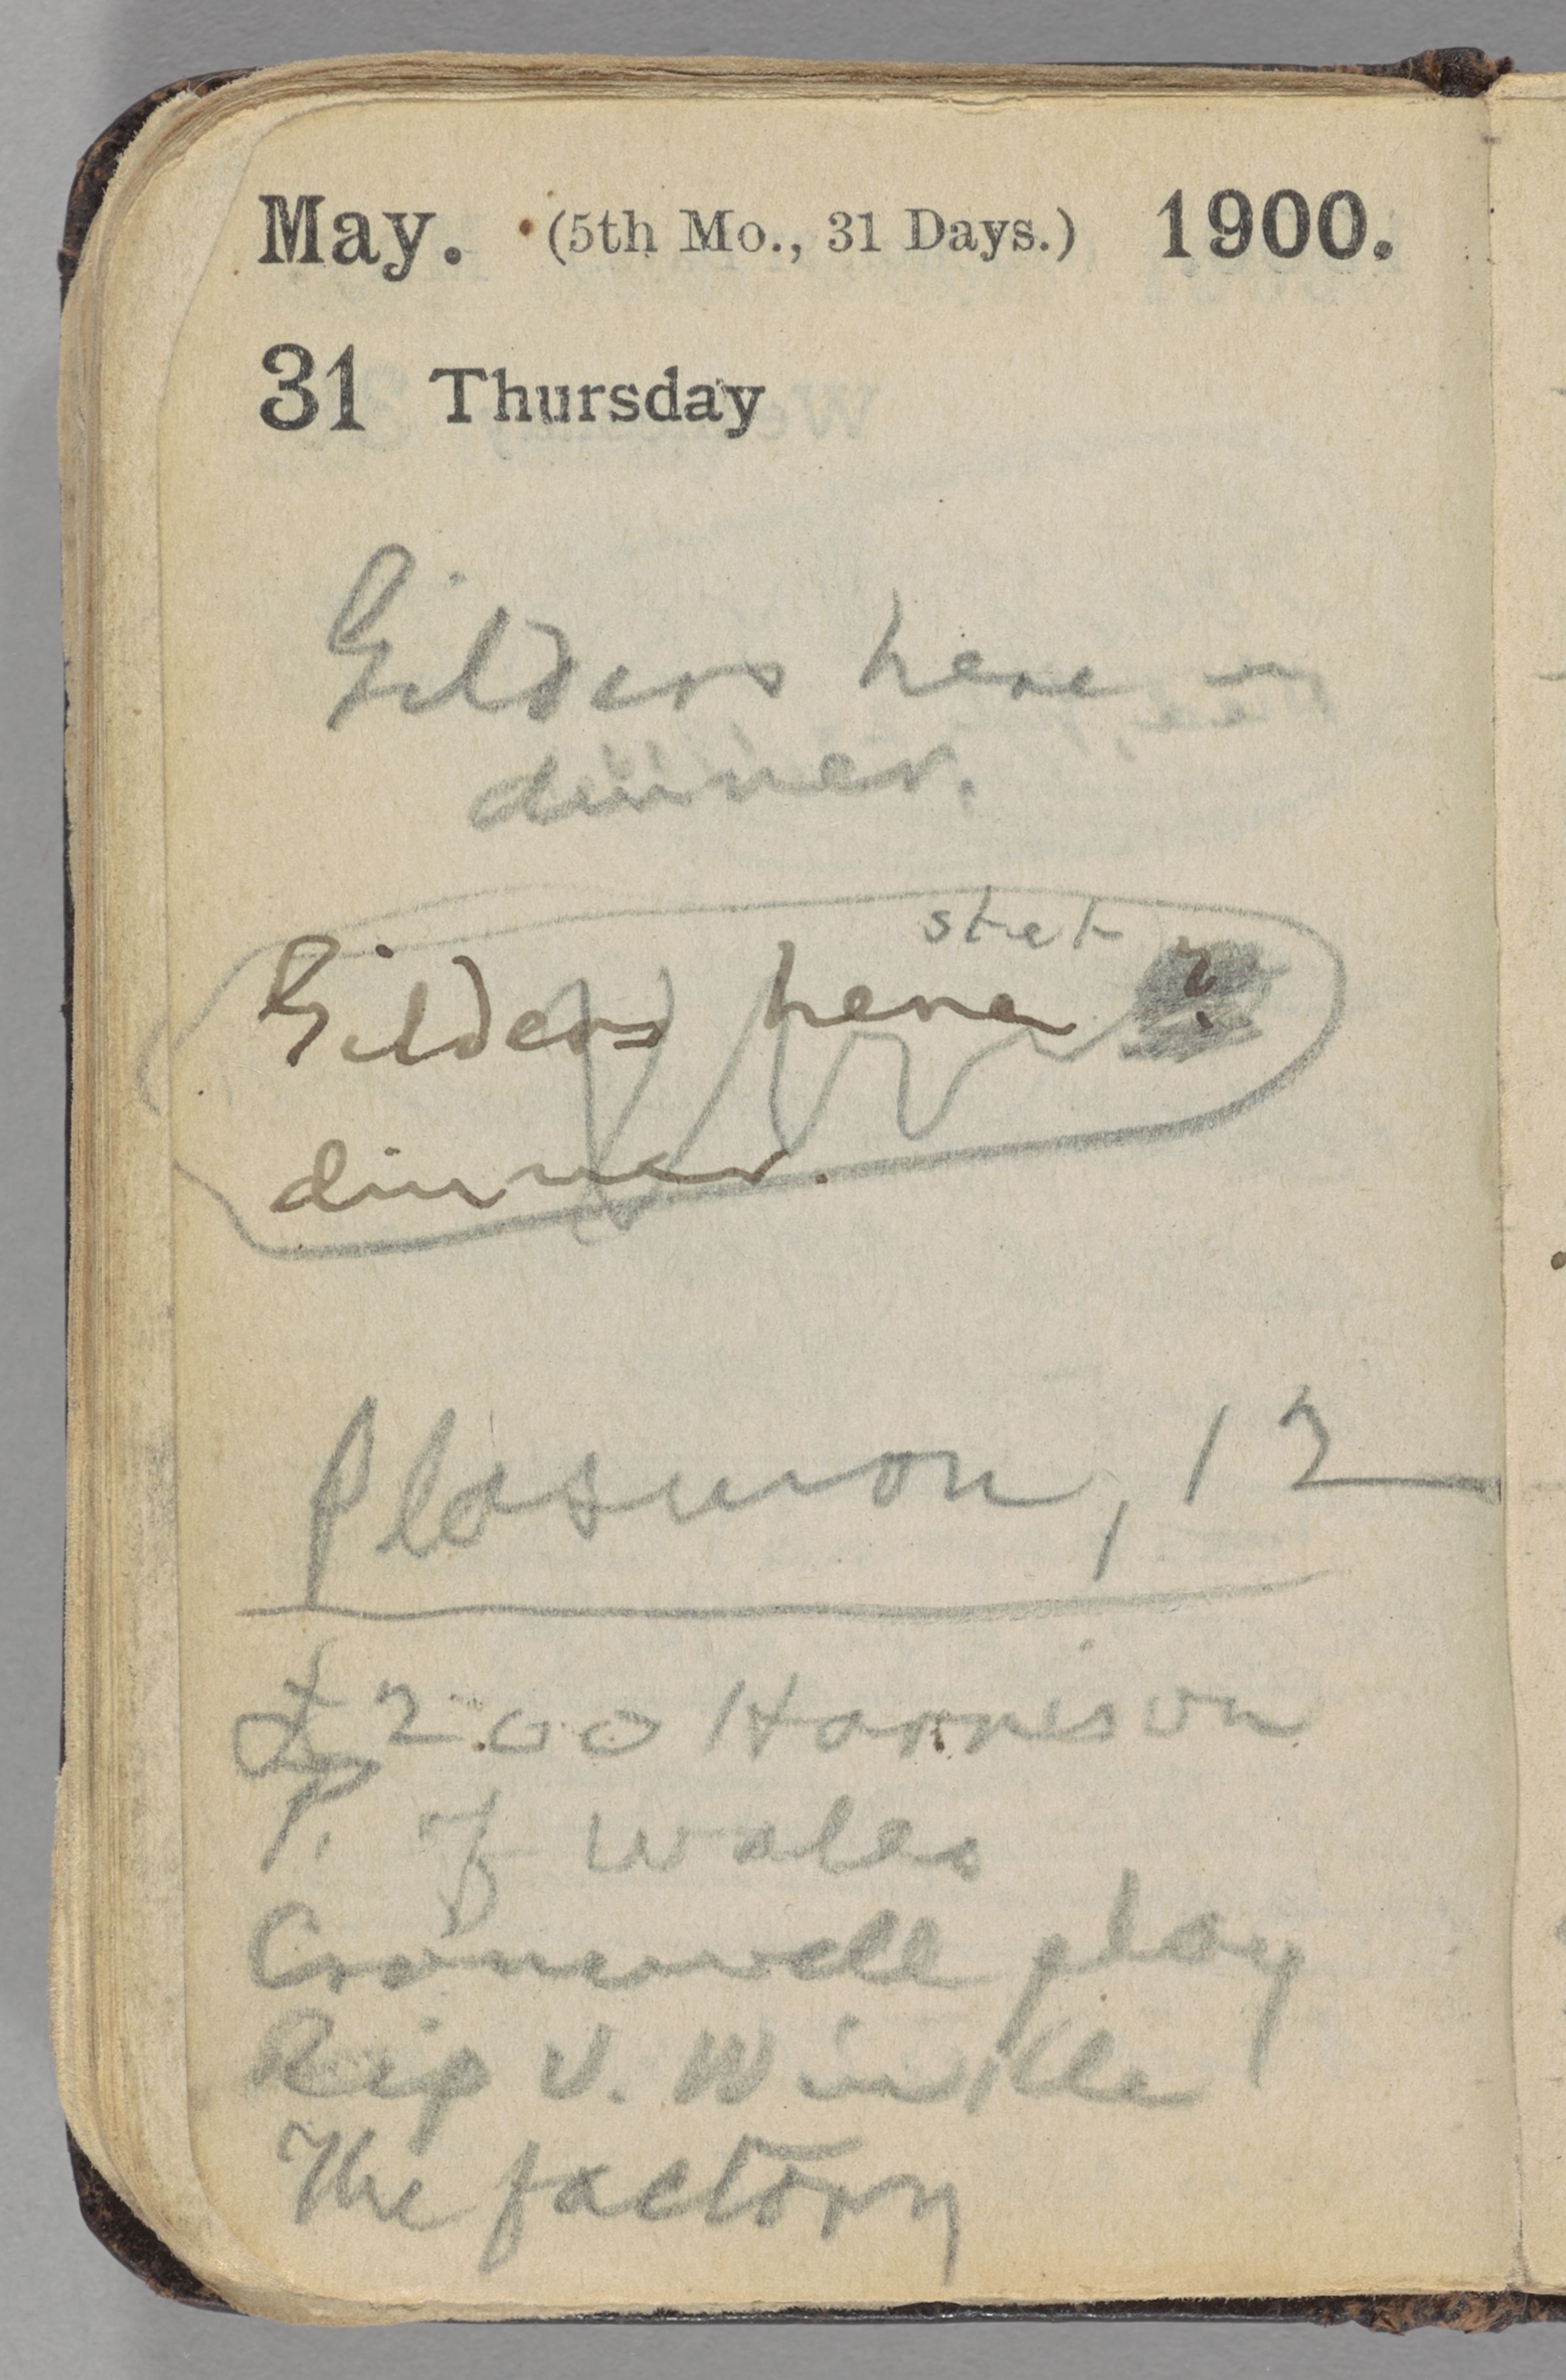 May. (5th Mo., 31 Days.) 1900.
31 Thursday
Gilders here —
dinner.
stet
Gilders here ?
dinner.
Plasmon, 12
£200 Harrison
P. of Wales
Cromwell play
Rip V. Winkle
The factory